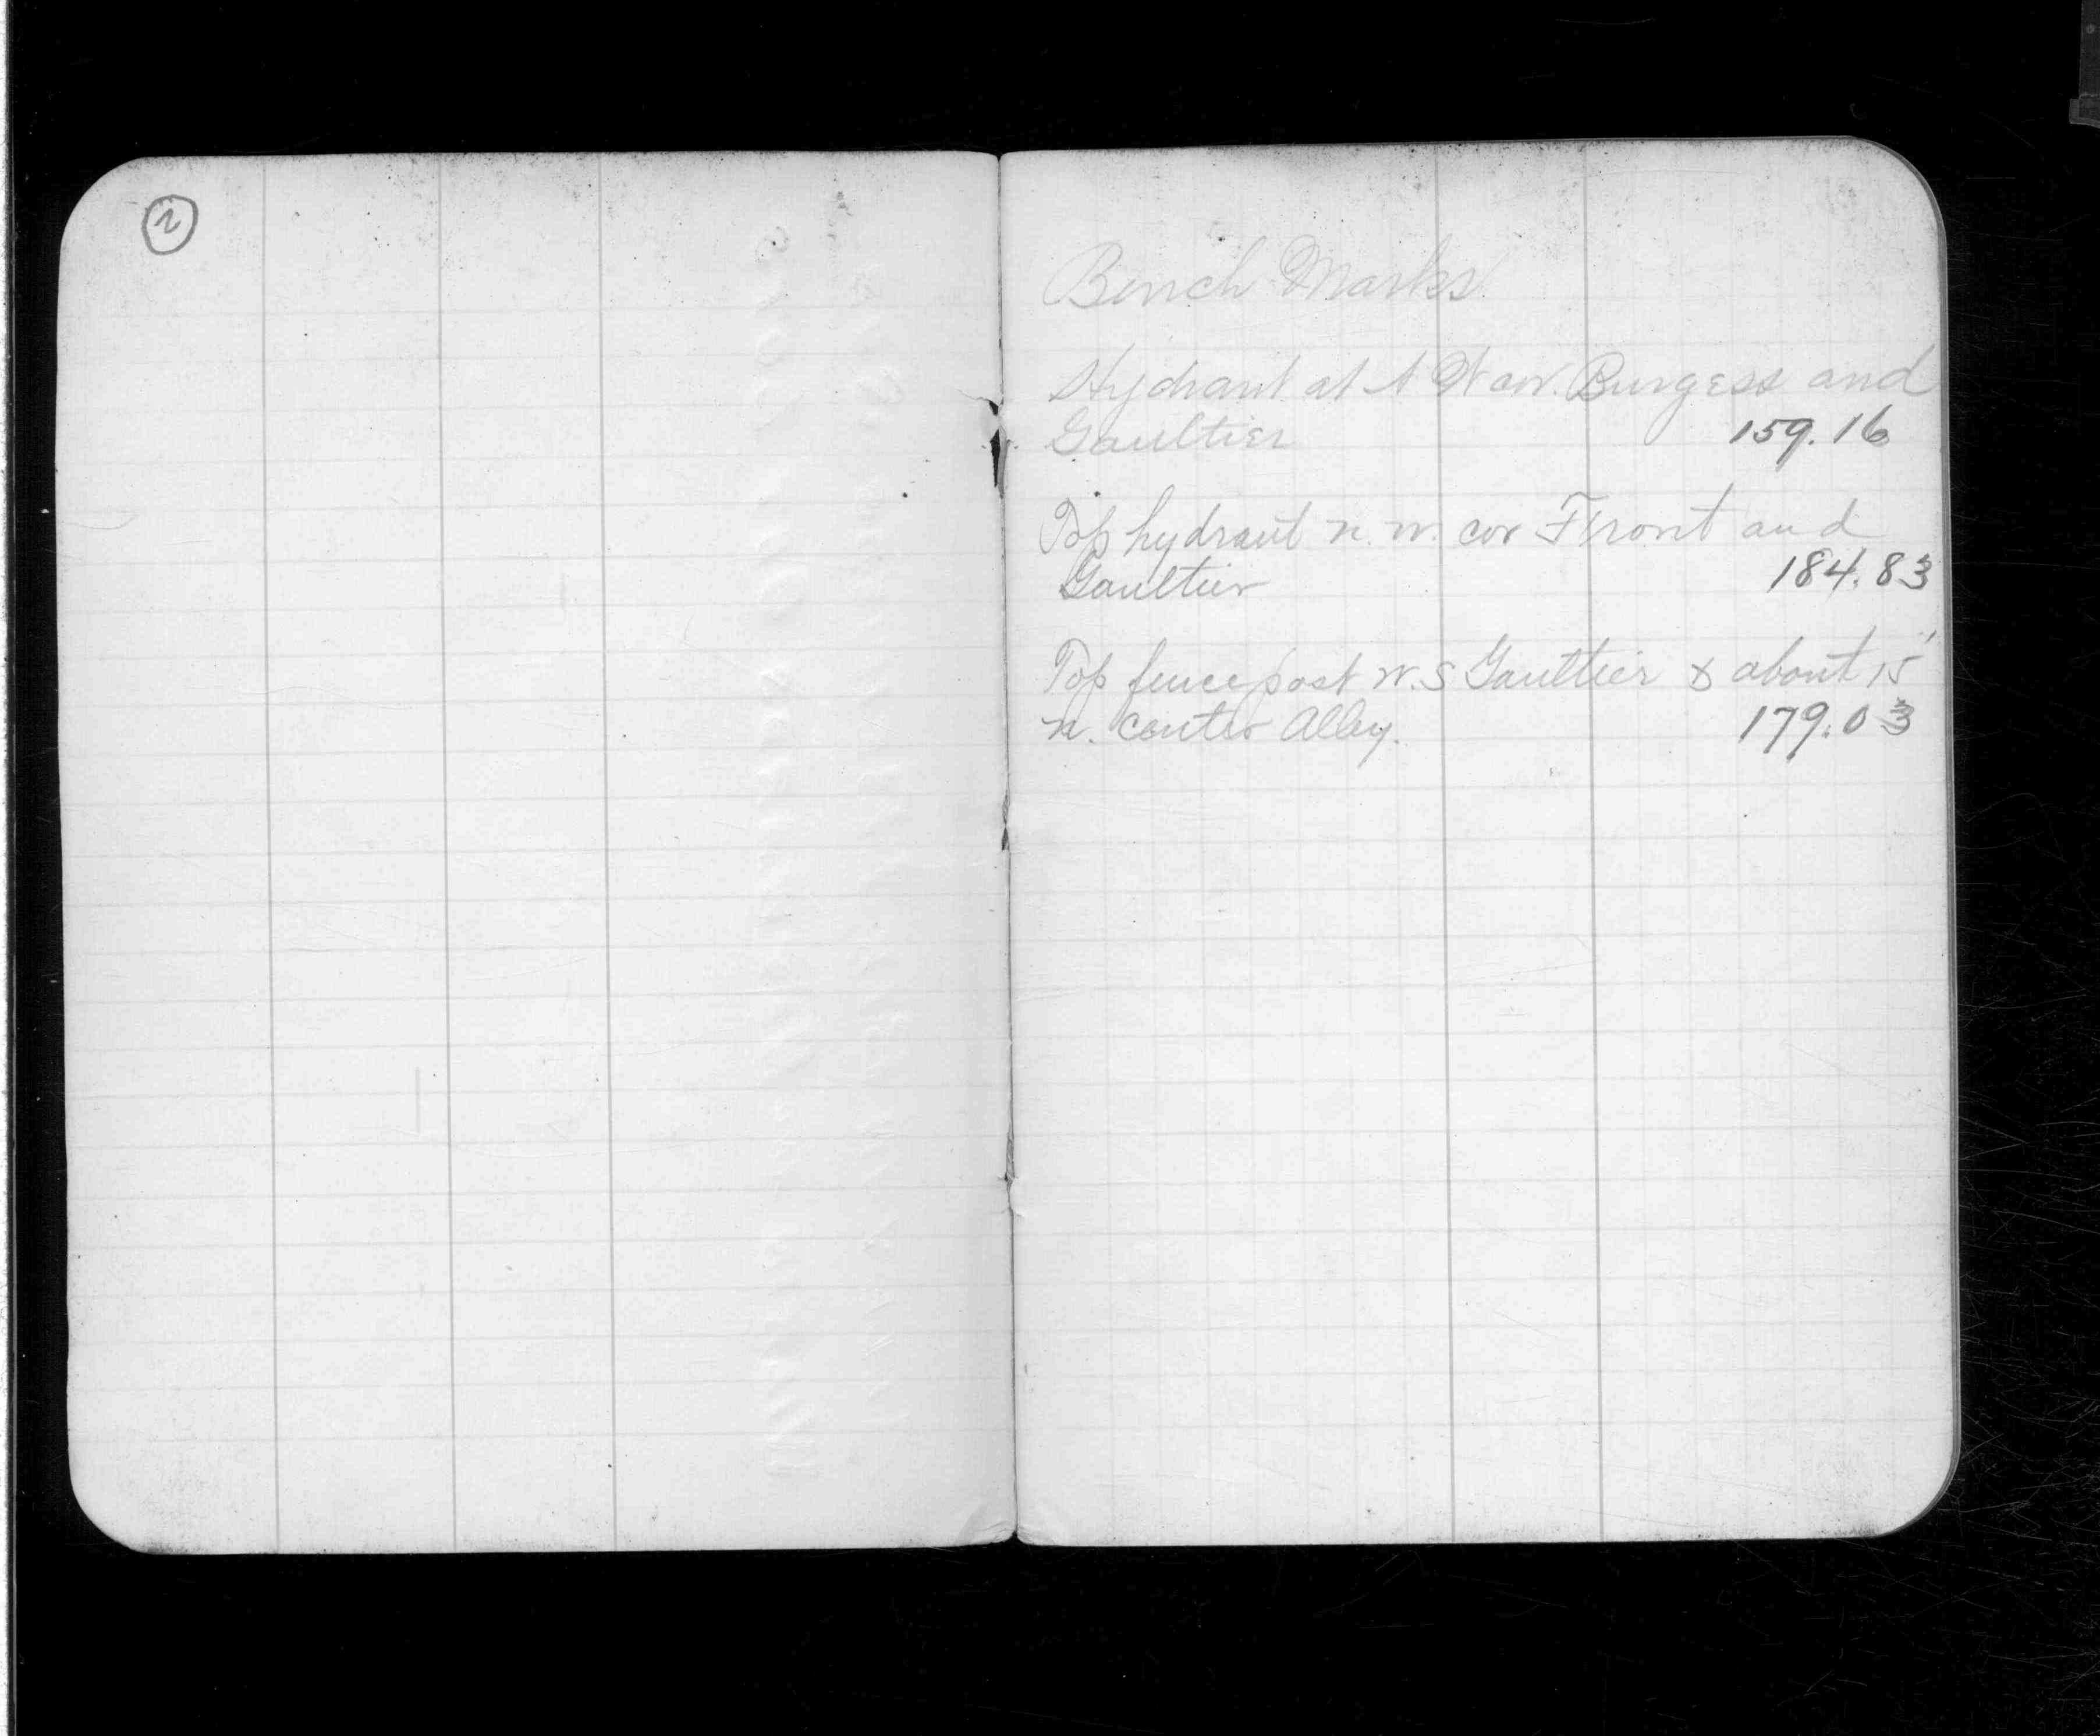 2
Bench Marks
Hydrant at N W cor. Burgess and
Gaultier 159.16
Top hydrant n. w. cor Front and
Gaultier 184.83
Top fence post W.S Gaultier & about 15'
n. center Alley. 179.03